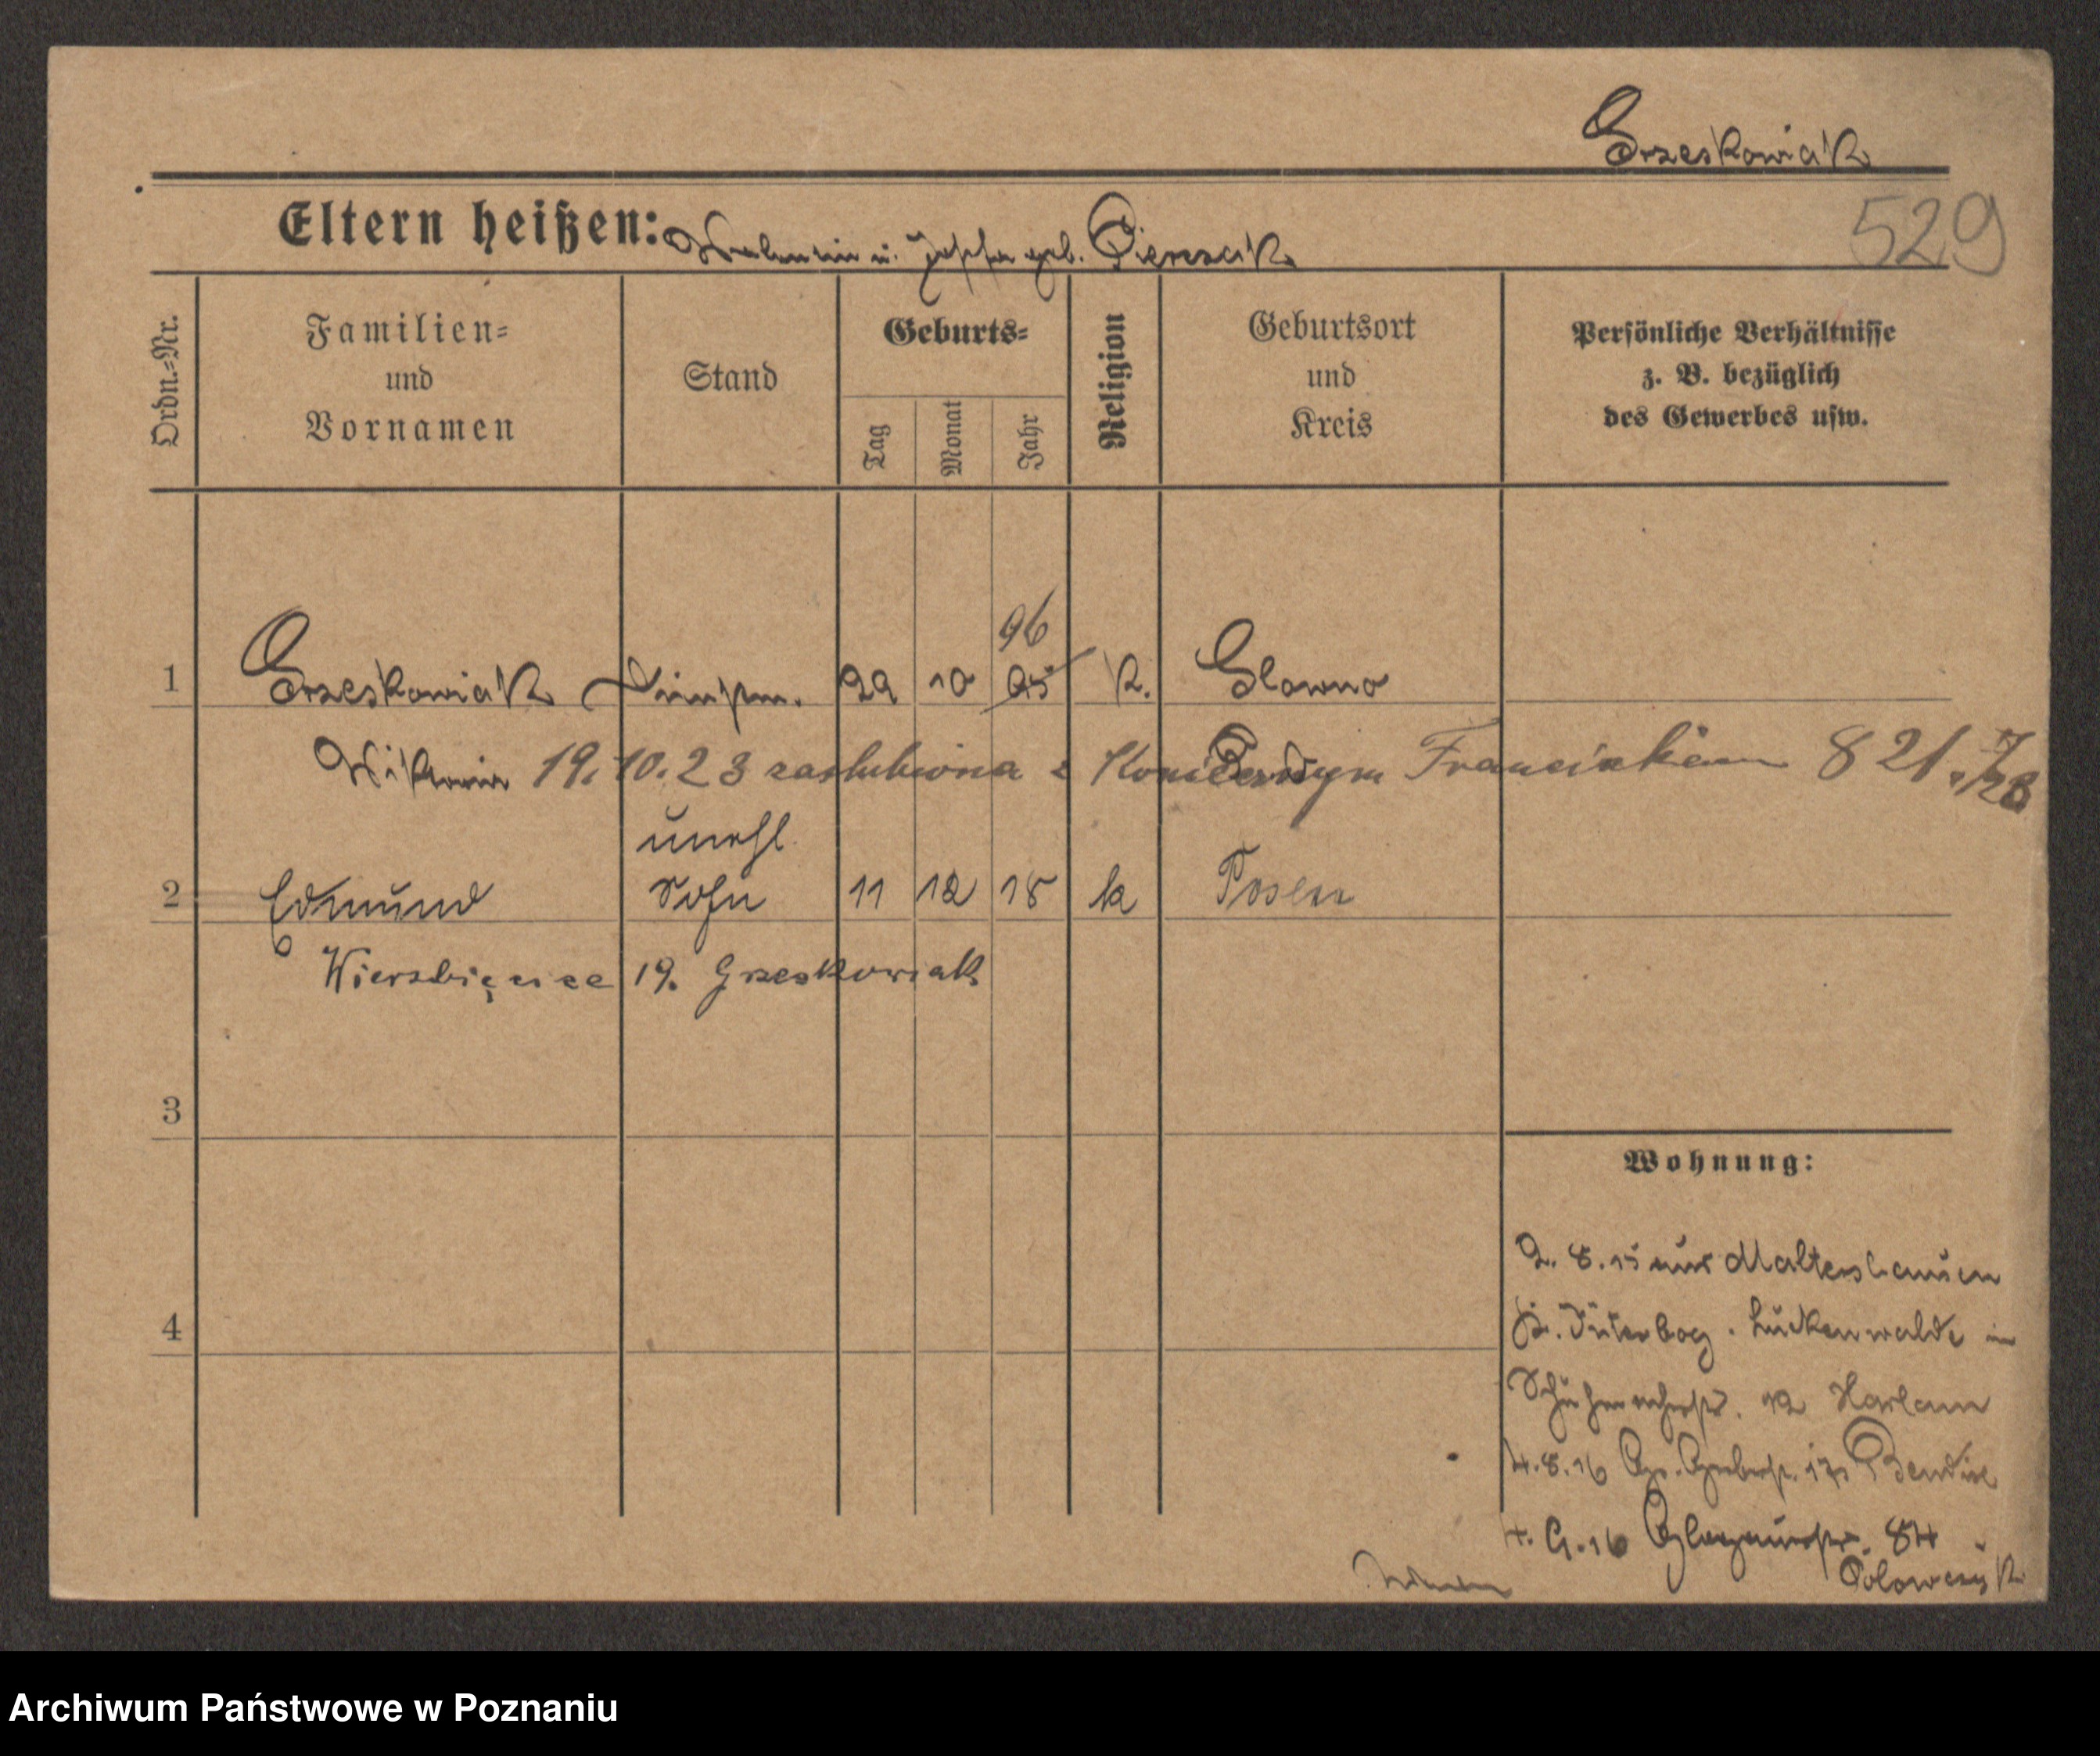 Grzeskowiak
Eltern heißen: Valentin u. Josefa geb. Pierszak
529
Ordn.=Nr.
Familien=
und
Vornamen
Stand
Geburts=
Tag
Monat
Jahr
Religion
Geburtsort
und
Kreis
Persönliche Verhältnisse
z. B. bezüglich
des Gewerbes usw.
96
1 Grzeskowiak 29 10 95 k. Glowno
Wiktoria 19. 10. 23 zaślubiona z Franciszkiem 8 21. 7/23
unehl.
2 Edmund Sohn 11 12 18 k Posen
Wierzbięcice 19. Grzeskowiak
3
Wohnung:
2. 8. 15 aus Malterhausen
Kr. Jüterbog. Luckenwalde in
4
Schuhmacherstr. 12
4. 8. 16 Gr. Gerberstr.
4. 9. 16 Glogauerstr. 84
Archiwum Państwowe w Poznaniu